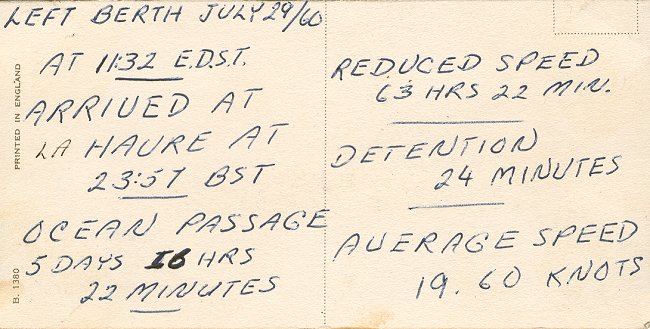 LEFT BERTH JULY 29/60
AT 11:32 E.D.S.T.
ARRIVED AT
LA HAVRE AT
23:57 BST
OCEAN PASSAGE
5 DAYS 16 HRS
22 MINUTES
PRINTED IN ENGLAND
B. 1380
REDUCED SPEED
63 HRS 22 MIN.
DETENTION
24 MINUTES
AVERAGE SPEED
19.60 KNOTS